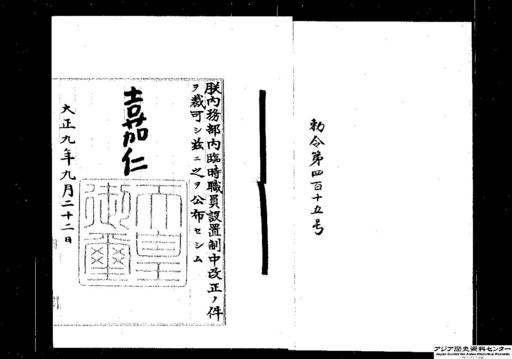 勅令第四百十五号
朕内務部内臨時職員設置制中改正ノ件
ヲ裁可シ茲ニ之ヲ公布セシム
嘉仁
天皇
御璽
大正九年九月二十二日
アジア歴史資料センター
Japan Center for Asian Historical Records